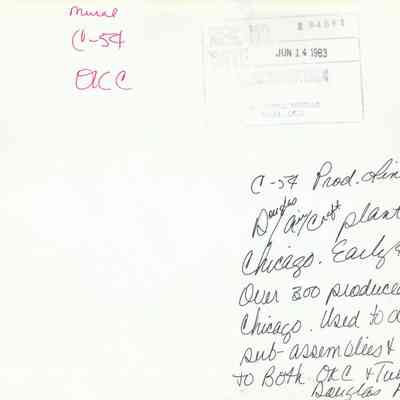 Mural
C-54
OKC
JUN 14 1983
C-54 Prod. Lin
Douglas Aircraft plant
Chicago. Early
Over 300 produce
Chicago. Used to
sub-assemblies &
to Both OKC & Tul
Douglas